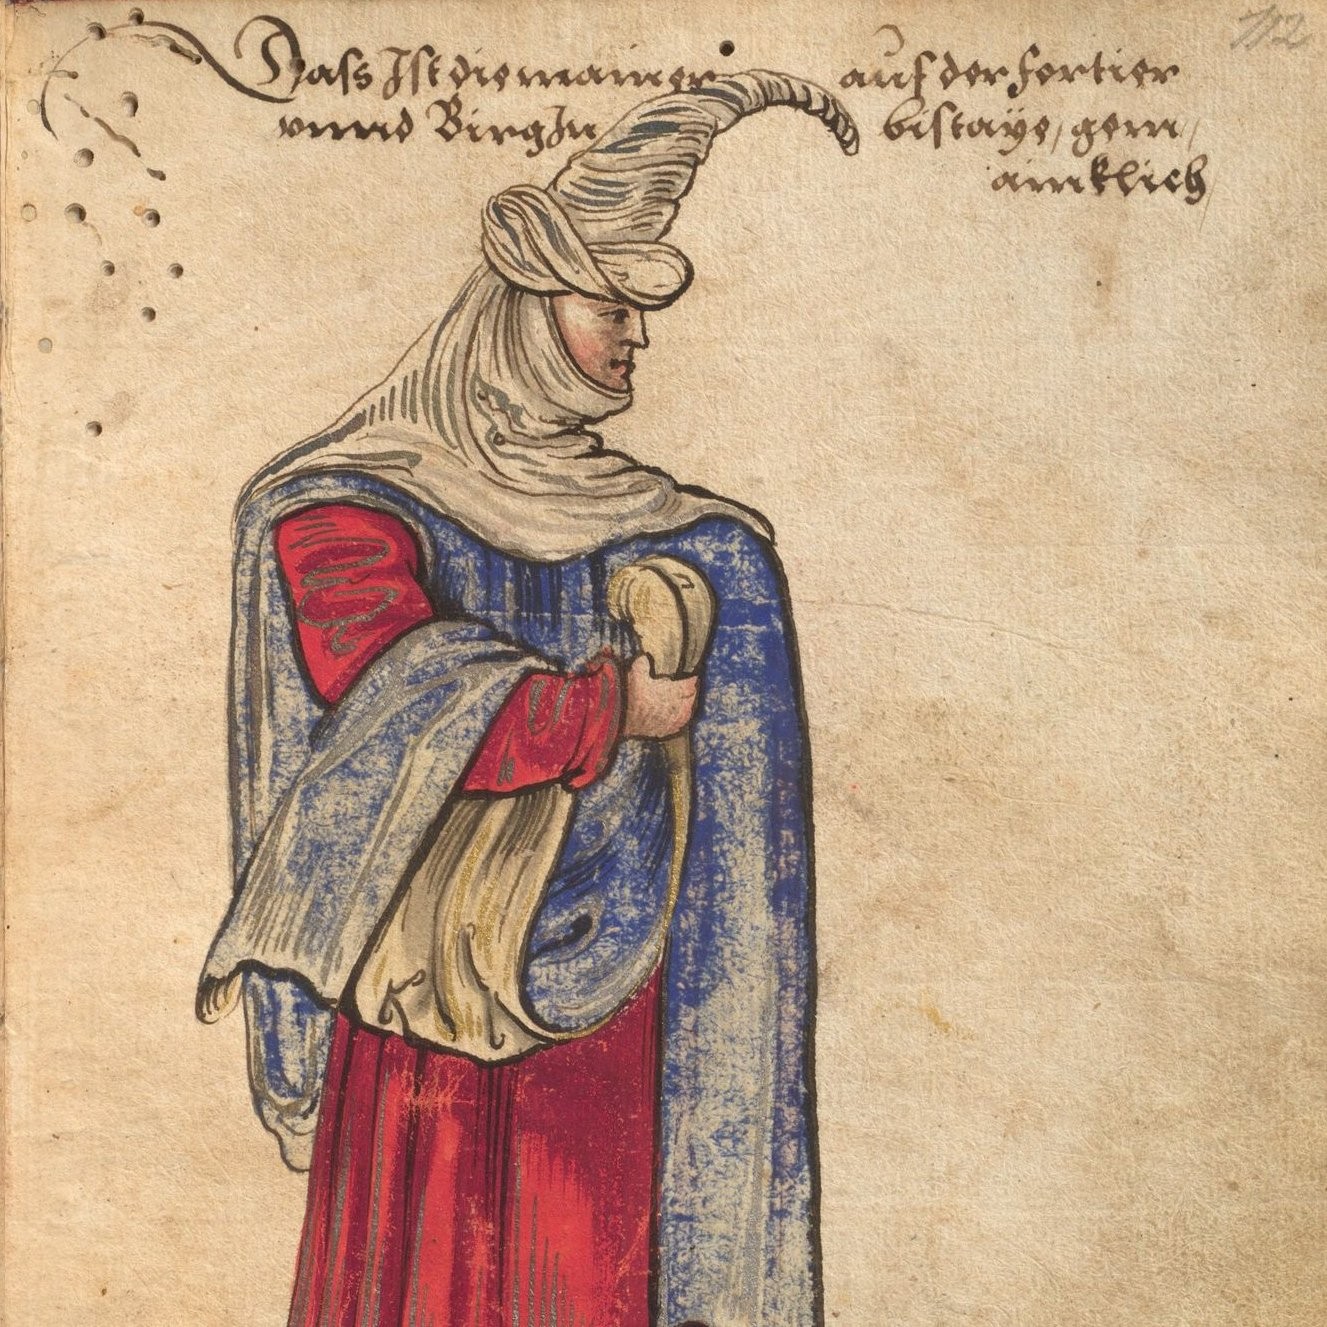 Dass Ist die mainer auf der fortier
vnnd Birg In bistaÿe, gem,
ainklich
112